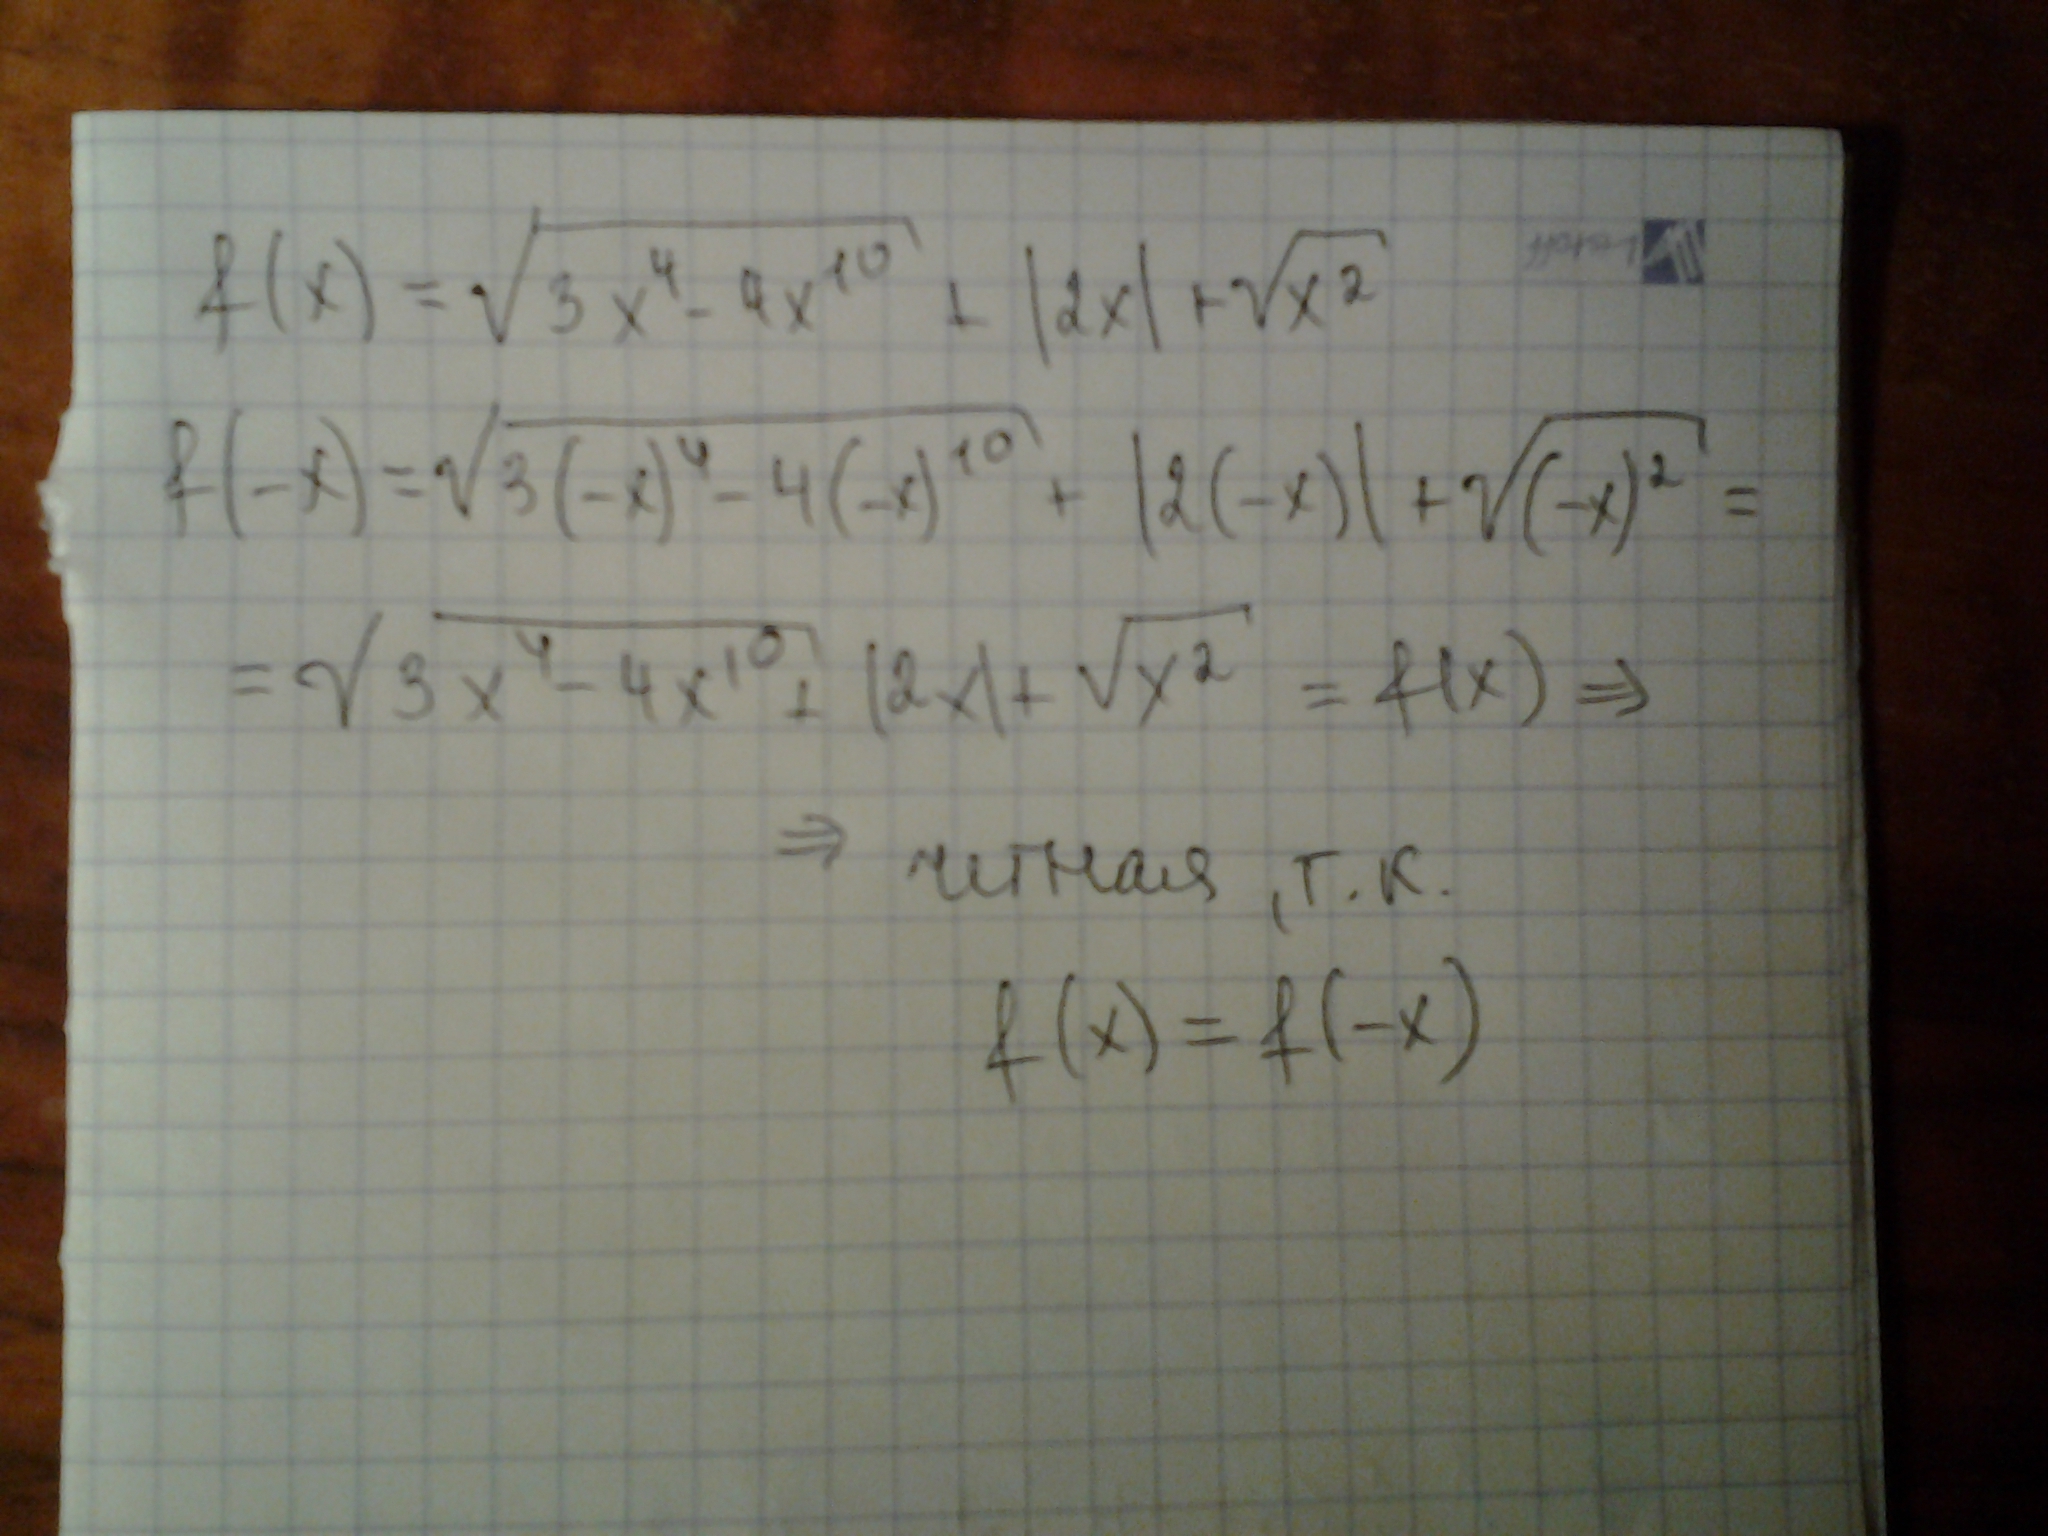 f(x) = √(3x⁴ - 4x¹⁰) + |2x| + √(x²)
f(-x) = √(3(-x)⁴ - 4(-x)¹⁰) + |2(-x)| + √((-x)²) =
= √(3x⁴ - 4x¹⁰) + |2x| + √(x²) = f(x) ⇒
⇒ четная, т.к.
f(x) = f(-x)